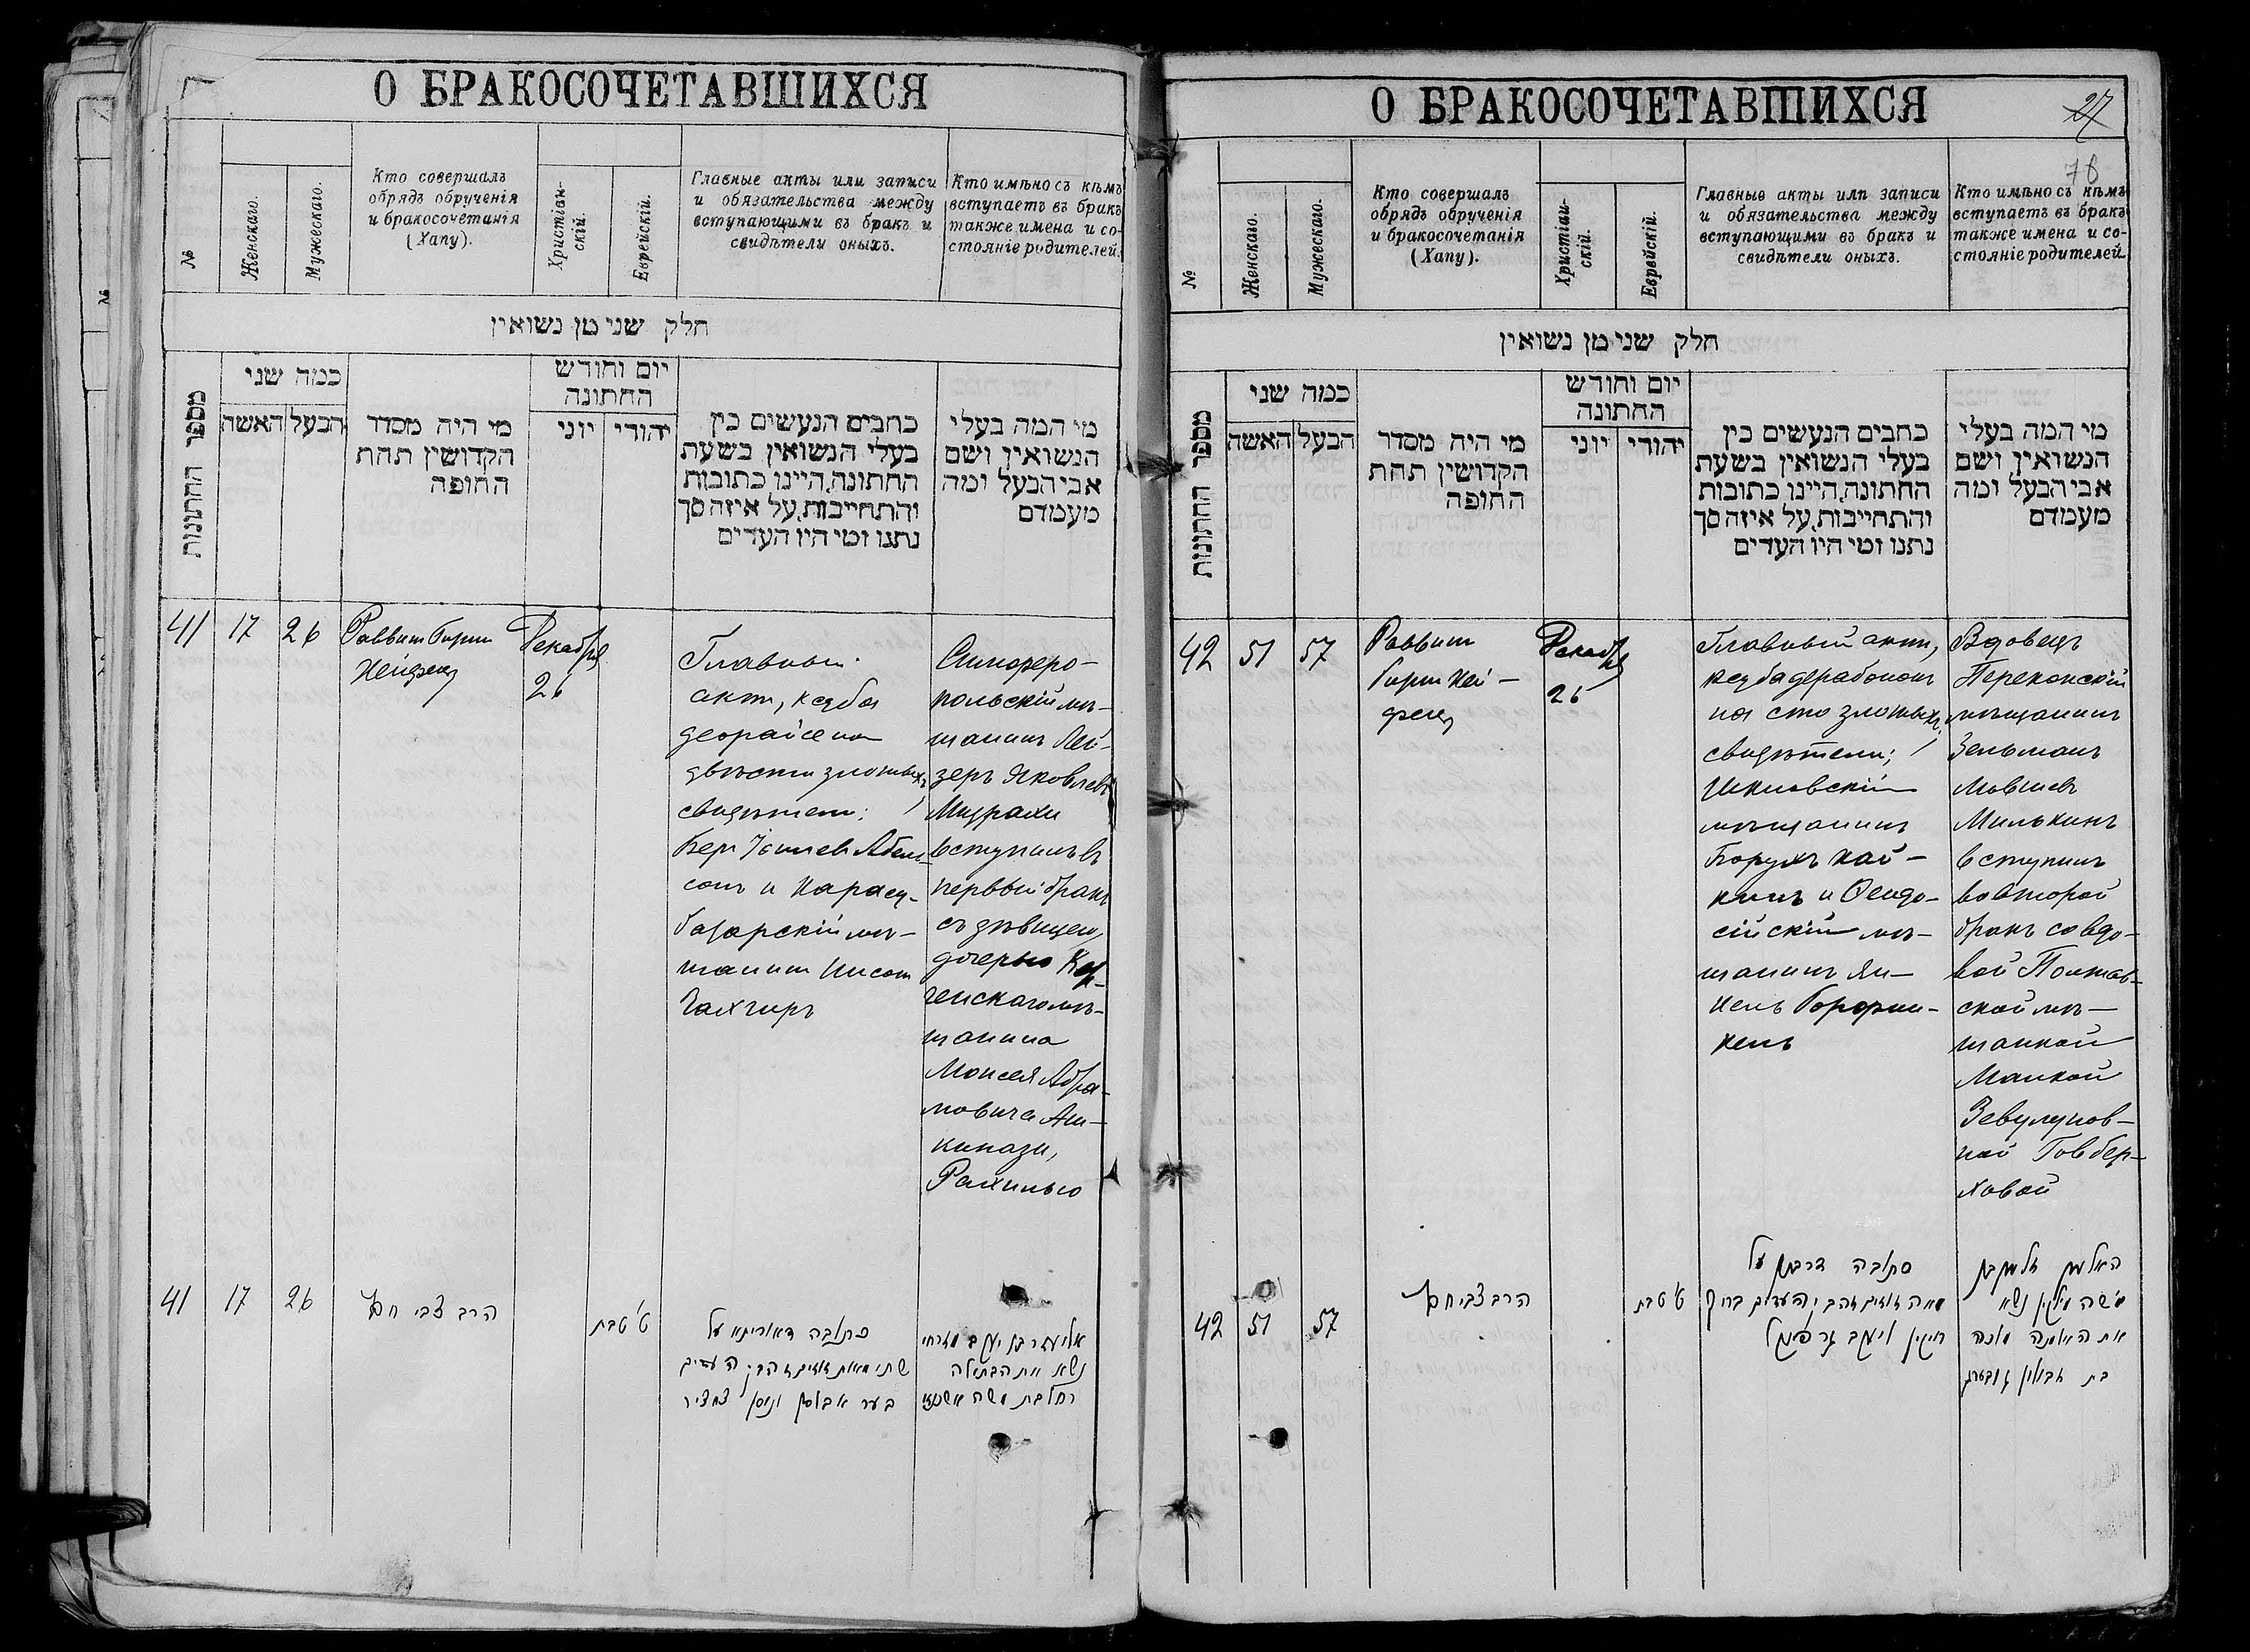 О БРАКОСОЧЕТАВШИХСЯ
№
Женскаго.
Мужескаго.
Кто совершалъ
обрядъ обрученія
и бракосочетанія
(Хапу).
Христіан-
скій.
Еврейскій.
Главные акты или записи
и обязательства между
вступающими въ бракъ и
свидѣтели оныхъ.
Кто имѣно съ кѣмъ
вступаетъ въ бракъ
также имена и со-
стояніе родителей.
חלק שני מן נשואין
מספר החתונות
כמה שני
הבעל
האשה
מי היה מסדר
הקדושין תחת
החופה
יום וחודש
החתונה
יהודי
יוני
כתבים הנעשים בין
בעלי הנשואין בשעת
החתונה, היינו כתובות
והתחייבות, על איזה סך
נתנו ומי היו העדים
מי המה בעלי
הנשואין ושם
אבי הבעל ומה
מעמדם
41
17
26
Раввин Гирш
Хейфец
Декабря
26
Главный
акт, ксуба
деорайсе на
двѣсти злотыхъ
свидѣтели:
Бер Іосиев Абель-
сонъ и Карасу-
базарскій мѣ-
щанинъ Нисонъ
Бахчиръ
Симферо-
польскій мѣ-
щанинъ Лей-
зеръ Яковлевъ
Мизрахи
вступилъ въ
первый бракъ
съ дѣвицею,
дочерью Кер-
ченскаго мѣ-
щанина
Моисея Абра-
мовича Аш-
кинази,
Рахилью
41
17
26
הרב צבי חפץ
ט' טבת
כתובה דאוריתא על
שתי מאות זוזים זהב, העדים
בער אבלסון וניסן
אליעזר בן יעקב מזרחי
נשא את הבתולה
רחל בת משה אשכנזי
О БРАКОСОЧЕТАВШИХСЯ
27
78
№
Женскаго.
Мужескаго.
Кто совершалъ
обрядъ обрученія
и бракосочетанія
(Хапу).
Христіан-
скій.
Еврейскій.
Главные акты или записи
и обязательства между
вступающими въ бракъ и
свидѣтели оныхъ.
Кто имѣно съ кѣмъ
вступаетъ въ бракъ
также имена и со-
стояніе родителей
חלק שני מן נשואין
מספר החתונות
כמה שני
הבעל
האשה
מי היה מסדר
הקדושין תחת
החופה
יום וחודש
החתונה
יהודי
יוני
כתבים הנעשים בין
בעלי הנשואין בשעת
החתונה, היינו כתובות
והתחייבות, על איזה סך
נתנו ומי היו העדים
מי המה בעלי
הנשואין ושם
אבי הבעל ומה
מעמדם
42
51
57
Раввин
Гирш Хей-
фец
Декабря
26
Главный акт,
ксуба дерабонон
на сто злотыхъ,
свидѣтели;
Шкловскій
мѣщанинъ
Борухъ Хай-
кинъ и Ѳеодо-
сійскій мѣ-
щанинъ Ян-
кель Горфин-
кель
Вдовецъ
Перекопскій
мѣщанинъ
Зельманъ
Мовшевъ
Милькинъ
вступилъ
во второй
бракъ со вдо-
вой Полтав-
ской мѣ-
щанкой
Малкой
Зевулунов-
ной Говбер-
ховой
42
51
57
הרב צבי חפץ
ט' טבת
כתובה דרבנן על
מאה זוזים זהב, העדים ברוך
חייקין ויעקב גרפינקל
האלמן זלמן בן
משה מילקין נשא
את האלמנה מלכה
בת זבולון